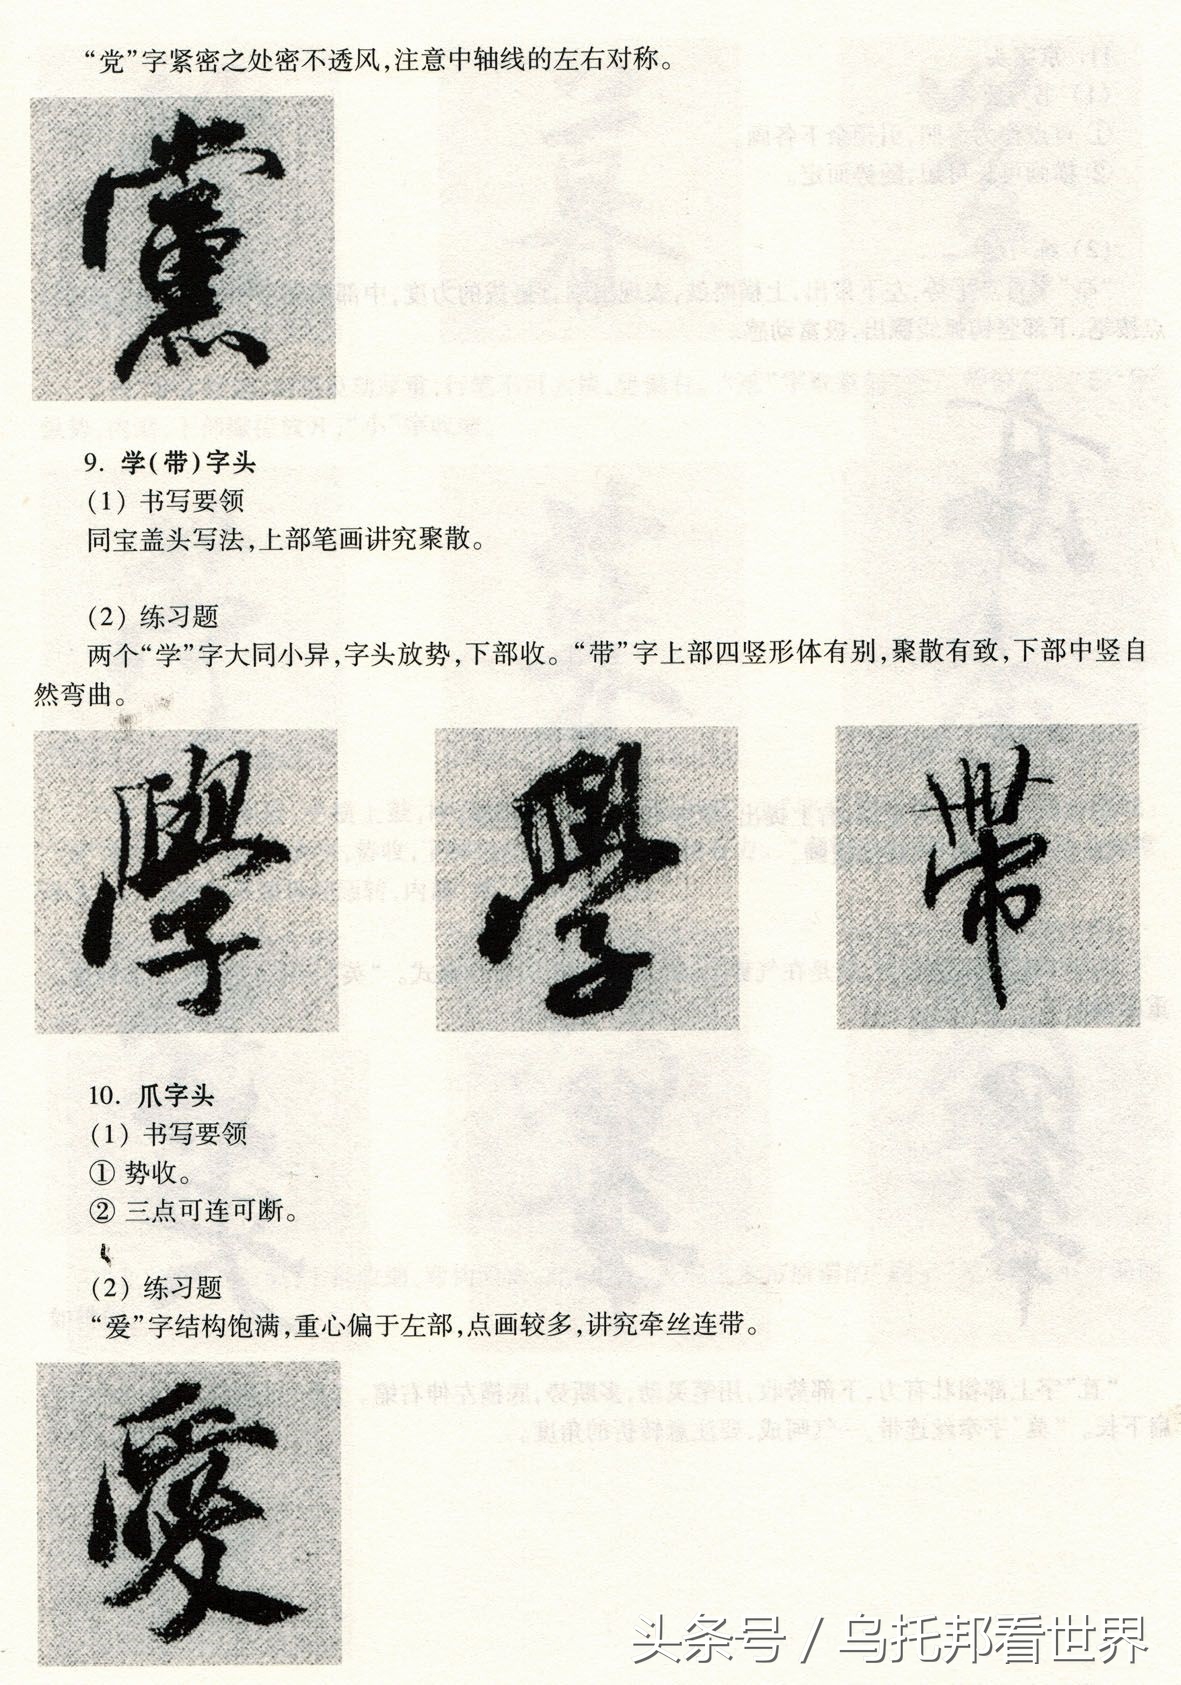 “党”字紧密之处密不透风,注意中轴线的左右对称。
黨
9. 学(带)字头
(1) 书写要领
同宝盖头写法,上部笔画讲究聚散。
(2) 练习题
两个“学”字大同小异,字头放势,下部收。“带”字上部四竖形体有别,聚散有致,下部中竖自
然弯曲。
學 學 帶
10. 爪字头
(1) 书写要领
① 势收。
② 三点可连可断。
(2) 练习题
“爱”字结构饱满,重心偏于左部,点画较多,讲究牵丝连带。
愛
头条号 / 乌托邦看世界